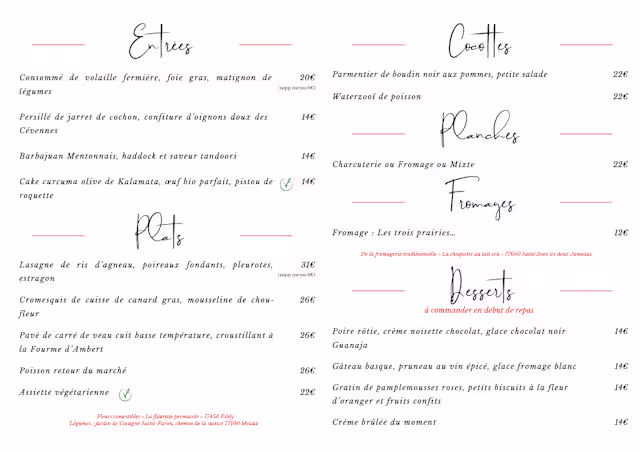 Entrées
Consommé de volaille fermière, foie gras, matignon de 20€
légumes (supp menu 6€)
Persillé de jarret de cochon, confiture d'oignons doux des 14€
Cévennes
Barbajuan Mentonnais, haddock et saveur tandoori 14€
Cake curcuma olive de Kalamata, œuf bio parfait, pistou de 14€
roquette
Plats
Lasagne de ris d'agneau, poireaux fondants, pleurotes, 31€
estragon (supp menu 8€)
Cromesquis de cuisse de canard gras, mousseline de chou- 26€
fleur
Pavé de carré de veau cuit basse température, croustillant à 26€
la Fourme d'Ambert
Poisson retour du marché 26€
Assiette végétarienne 22€
Fleurs comestibles « La fleurette permacole » 77450 Esbly
Légumes : jardin de Cocagne Saint-Faron, chemin de la justice 77100 Meaux
Cocottes
Parmentier de boudin noir aux pommes, petite salade 22€
Waterzooï de poisson 22€
Planches
Charcuterie ou Fromage ou Mixte 22€
Fromages
Fromage : Les trois prairies... 12€
De la fromagerie traditionnelle « La choquette au lait cru » 77660 Saint Jean les deux Jumeaux
Desserts
à commander en début de repas
Poire rôtie, crème noisette chocolat, glace chocolat noir 14€
Guanaja
Gâteau basque, pruneau au vin épicé, glace fromage blanc 14€
Gratin de pamplemousses roses, petits biscuits à la fleur 14€
d'oranger et fruits confits
Crème brûlée du moment 14€